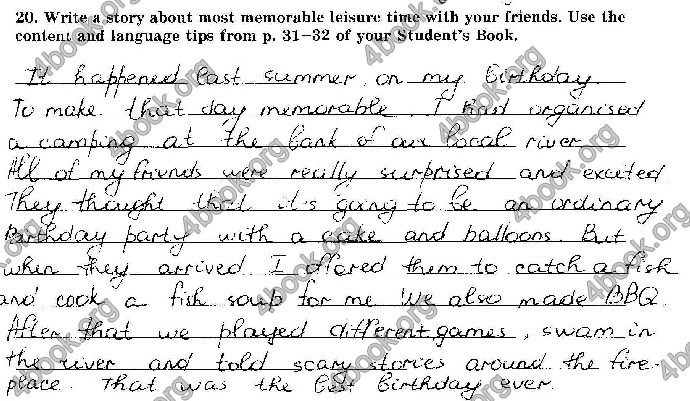 20. Write a story about most memorable leisure time with your friends. Use the
content and language tips from p. 31–32 of your Student's Book.
It happened last summer on my birthday.
To make that day memorable I had organised
a camping at the bank of our local river.
All of my friends were really surprised and excited
They thought that it's going to be an ordinary
Birthday party with a cake and balloons. But
when they arrived I offered them to catch a fish
and cook a fish soup for me. We also made BBQ.
After that we played different games, swam in
the river and told scary stories around the fire-
place. That was the best birthday ever.
4book.org